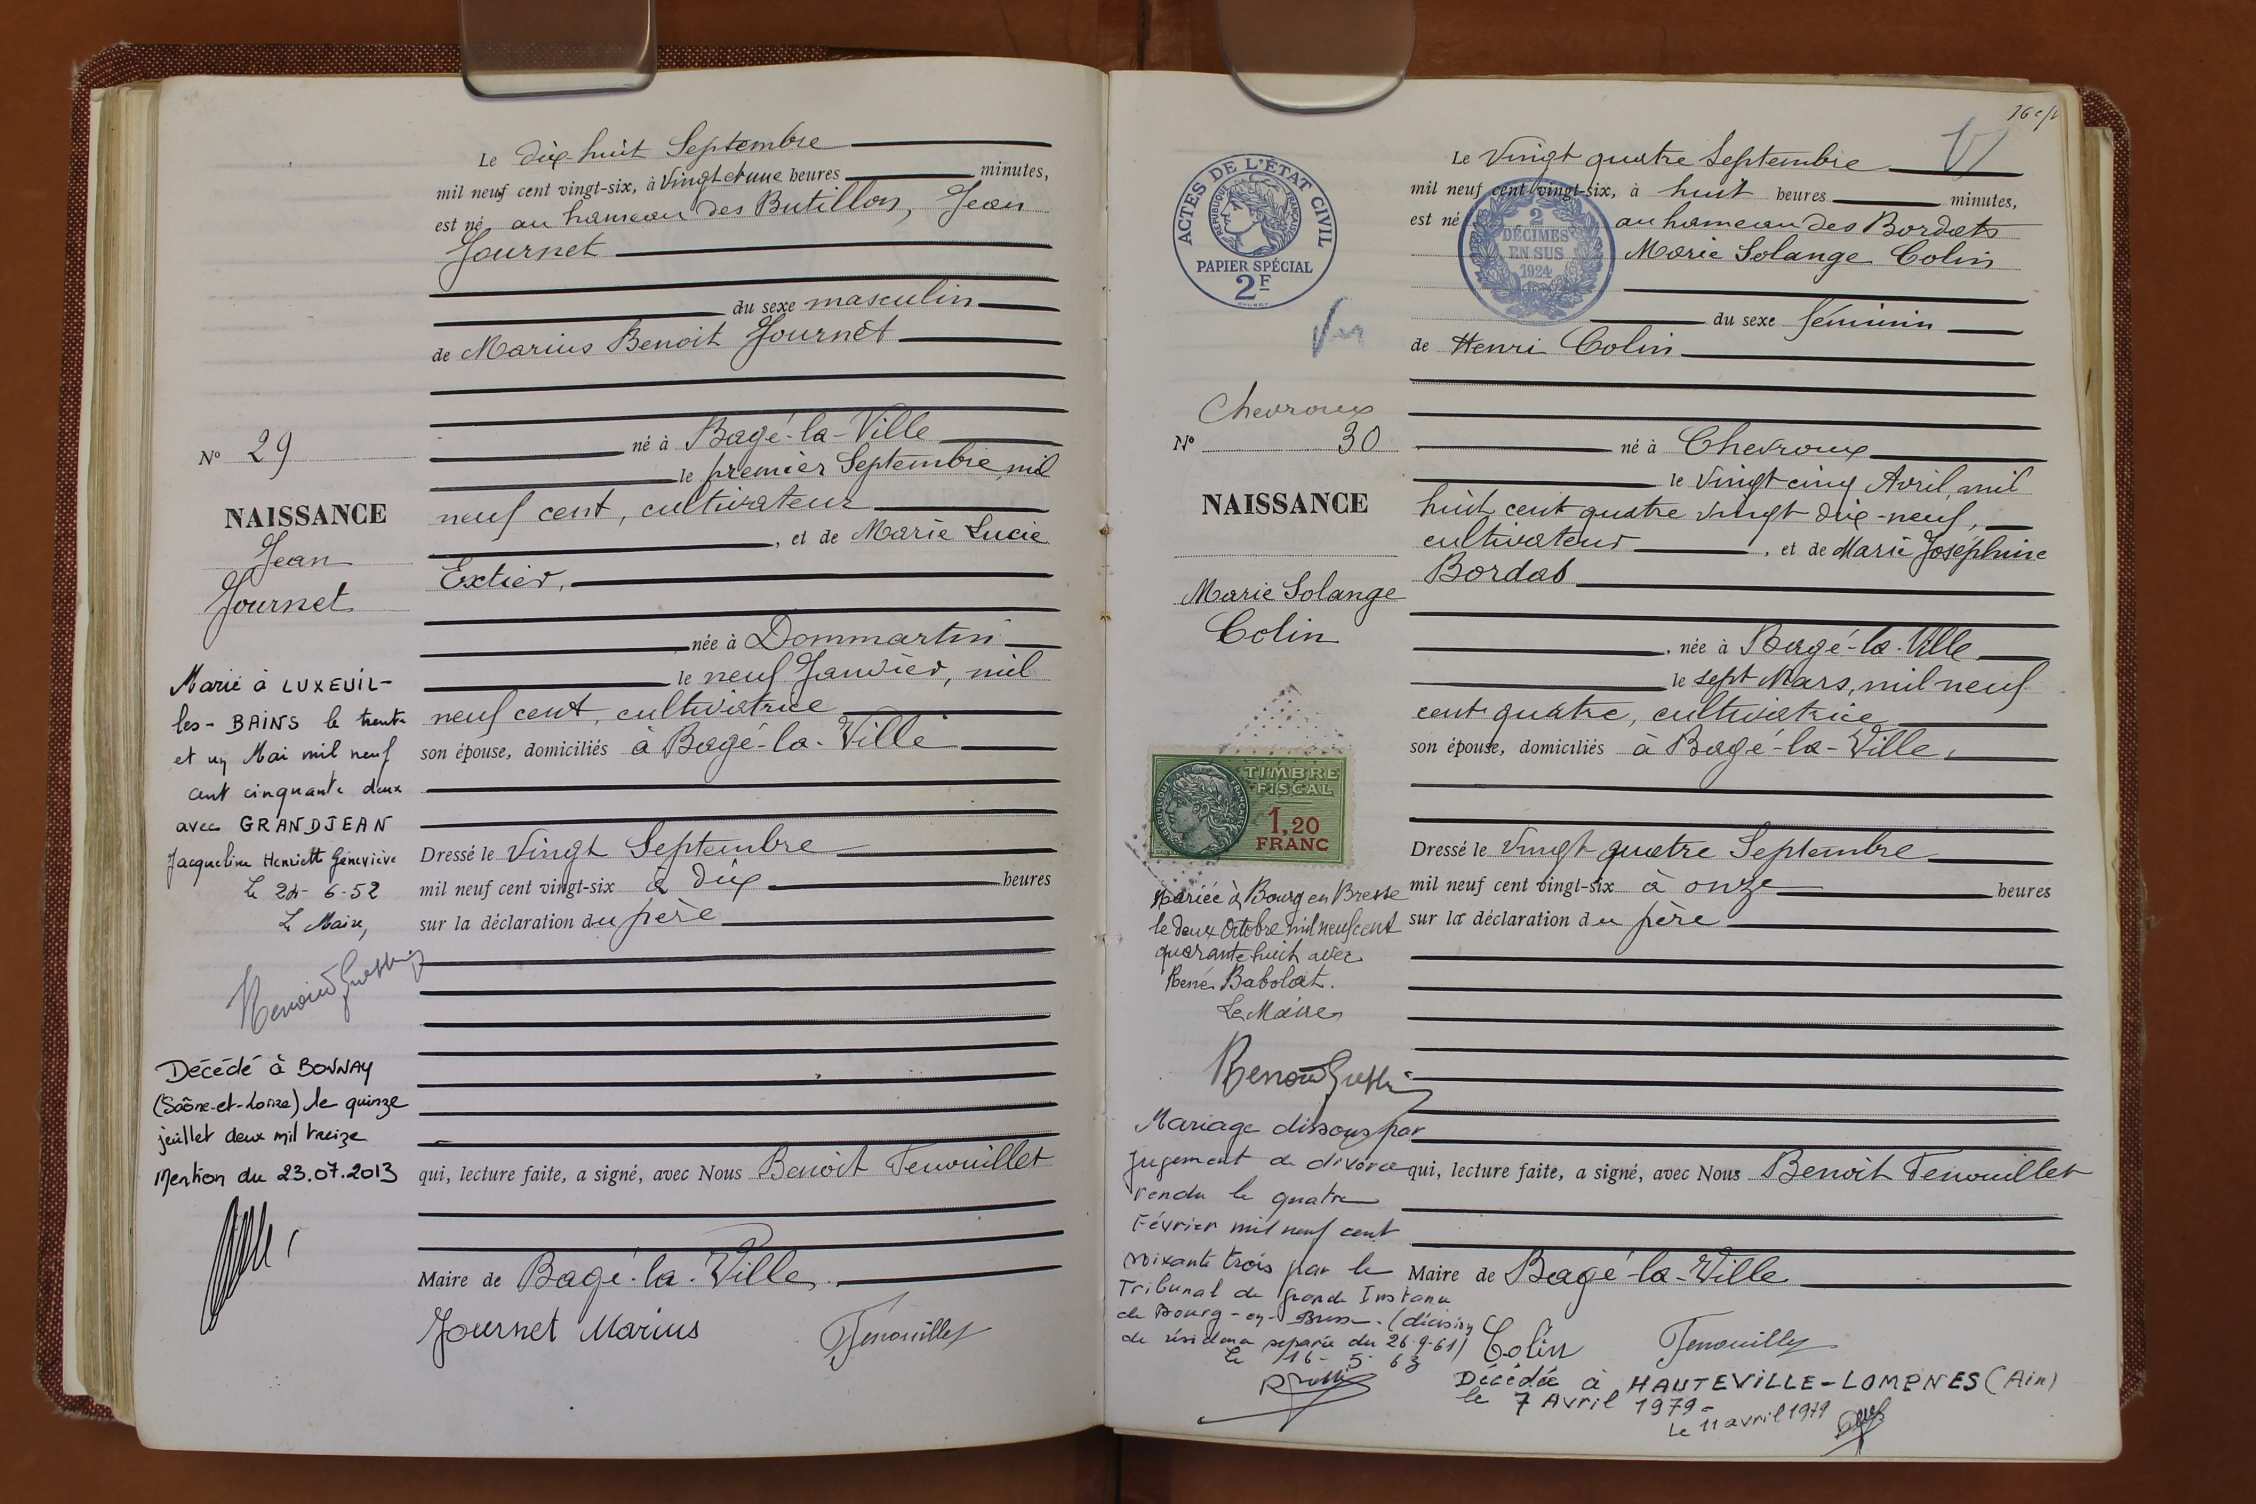 Le dix-huit Septembre
mil neuf cent vingt-six, à vingt et une heures minutes,
est né au hameau des Butillons, Jean
Journet
du sexe masculin
de Marius Benoit Journet
né à Bagé-la-Ville
le premier Septembre, mil
neuf cent, cultivateur
, et de Marie Lucie
Extier,
née à Dommartin
le neuf Janvier, mil
neuf cent, cultivatrice
son épouse, domiciliés à Bagé-la-Ville
Dressé le vingt Septembre
mil neuf cent vingt-six à dix heures
sur la déclaration du père
qui, lecture faite, a signé, avec Nous Benoit Fenouillet
Maire de Bagé-la-Ville,
Journet Marius Fenouillet
N° 29
NAISSANCE
Jean
Journet
Marié à LUXEUIL-
les-BAINS le trente
et un Mai mil neuf
cent cinquante deux
avec GRANDJEAN
Jacqueline Henriette Geneviève
Le 24-6-52
Le Maire,
Décédé à BONNAY
(Saône-et-Loire) le quinze
juillet deux mil treize
Mention du 23.07.2013
Le vingt quatre Septembre
mil neuf cent vingt-six, à huit heures minutes,
est né au hameau des Bordats
Marie Solange Colin
du sexe féminin
de Henri Colin
né à Chevroux
le vingt cinq Avril, mil
huit cent quatre vingt dix-neuf,
cultivateur , et de Marie Joséphine
Bordat
, née à Bagé-la-Ville
le sept Mars, mil neuf
cent quatre, cultivatrice
son épouse, domiciliés à Bagé-la-Ville,
Dressé le vingt quatre Septembre
mil neuf cent vingt-six à onze heures
sur la déclaration du père
qui, lecture faite, a signé, avec Nous Benoit Fenouillet
Maire de Bagé-la-Ville
Colin Fenouillet
Décédée à HAUTEVILLE-LOMPNES (Ain)
le 7 Avril 1979-
Le 11 avril 1979
ACTES DE L'ÉTAT CIVIL
RÉPUBLIQUE FRANÇAISE
PAPIER SPÉCIAL
2F
2
DÉCIMES
EN SUS
1924
Chevroux
N° 30
NAISSANCE
Marie Solange
Colin
TIMBRE
FISCAL
RÉPUBLIQUE FRANÇAISE
1,20
FRANC
Mariée à Bourg en Bresse
le deux Octobre mil neuf cent
quarante huit avec
René Babolat.
Le Maire
Mariage dissous par
jugement de divorce
rendu le quatre
Février mil neuf cent
soixante trois par le
Tribunal de grande Instance
de Bourg-en-Bresse. (décision
de résidence séparée du 26-9-61)
Le 16-5-63